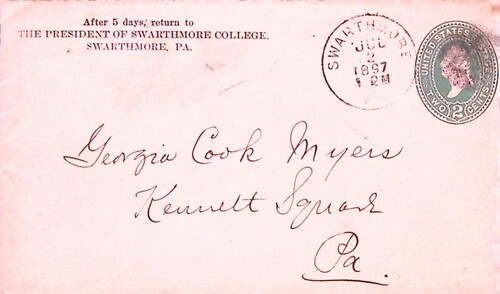 After 5 days, return to
THE PRESIDENT OF SWARTHMORE COLLEGE,
SWARTHMORE, PA.
SWARTHMORE
JUL
2
1897
1 PM
UNITED STATES
TWO 2 CENTS
Georgia Cook Myers
Kennett Square
Pa.